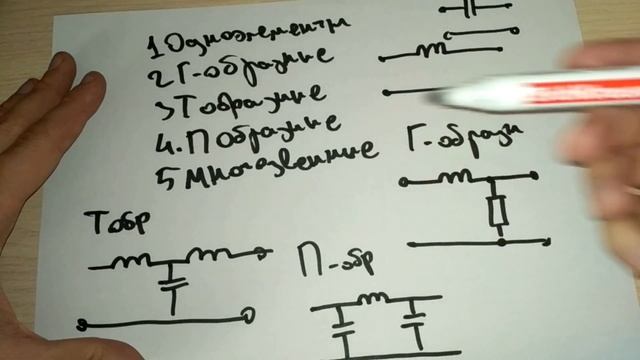 1 Одноэлементн
2 Г-образние
3 Тобразние
4. П образние
5 Многозвенние
Г-образн
Тобр
П-обр